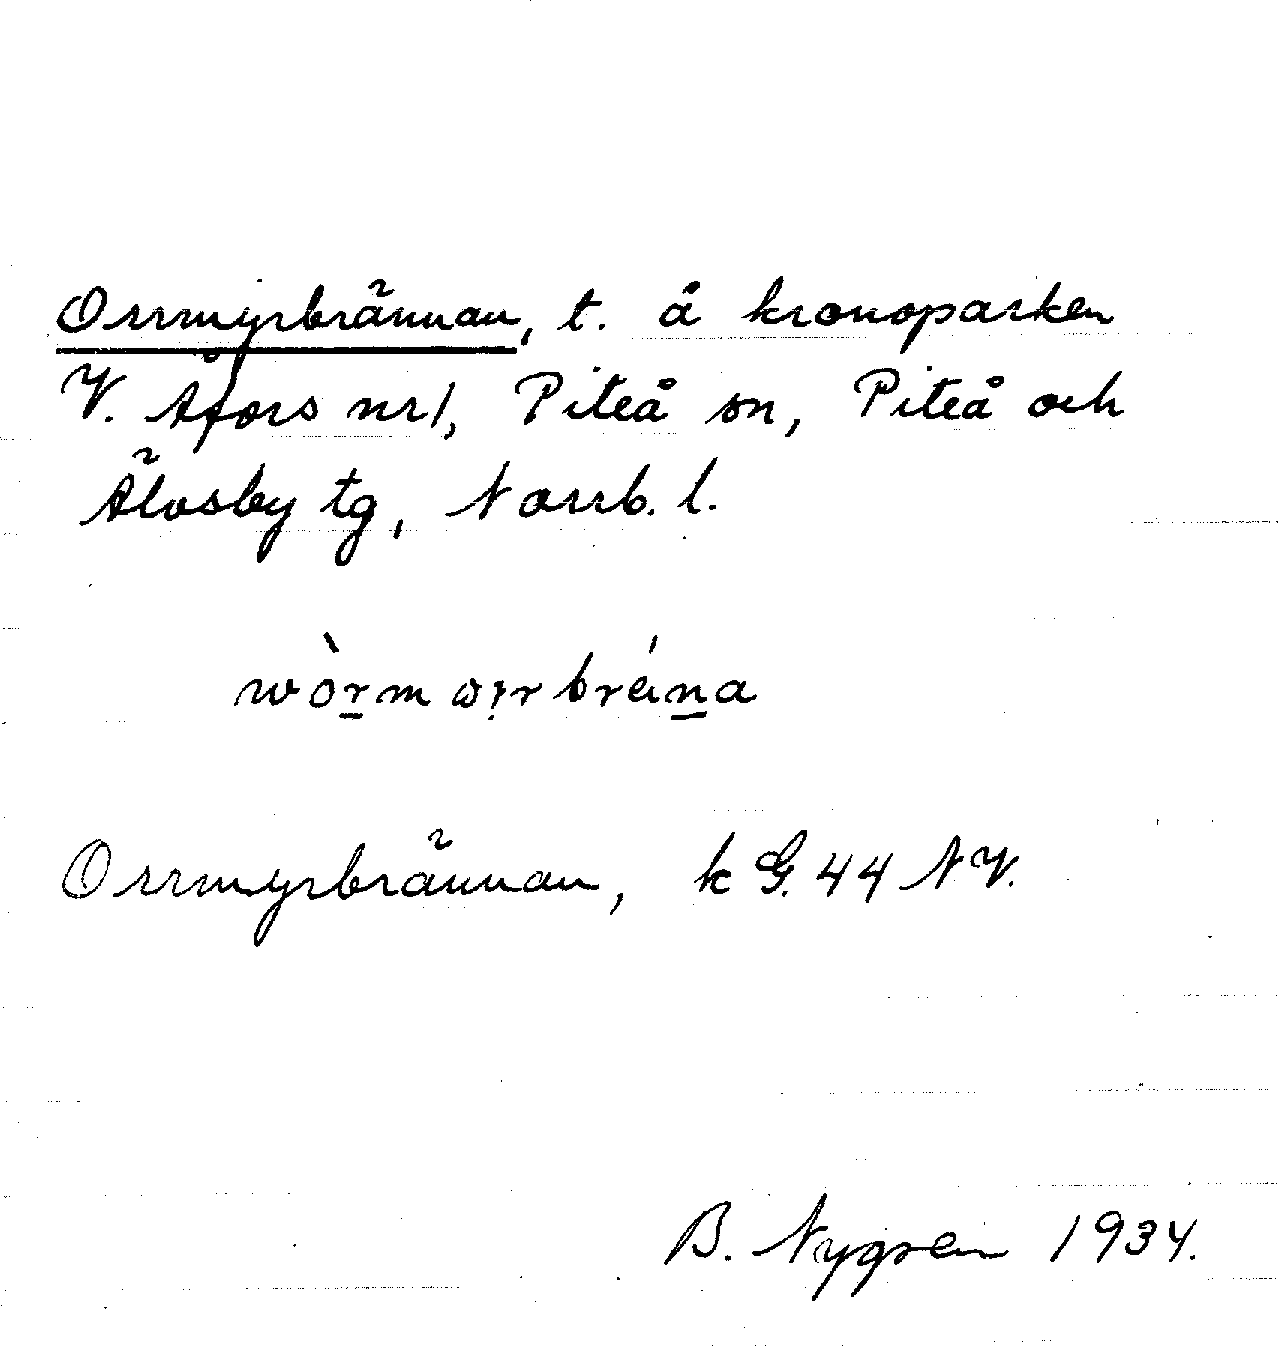 Orrmyrbrännan, t. å kronoparken
V. Åfors nr 1, Piteå sn, Piteå och
Älvsby tg, Norrb. l.
wòrmɷırbréına
Orrmyrbrännan, k G. 44 NV.
B. Nygren 1934.